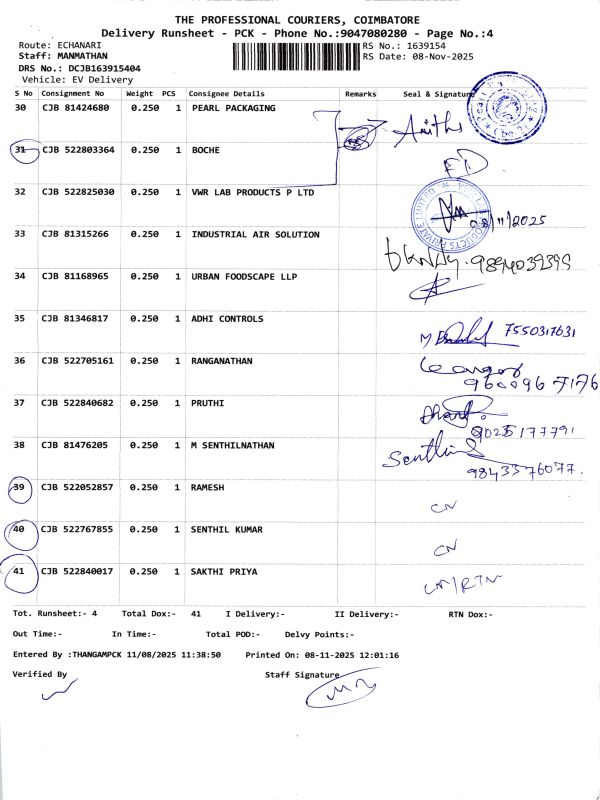 THE PROFESSIONAL COURIERS, COIMBATORE
Delivery Runsheet - PCK - Phone No.:9047080280 - Page No.:4
Route: ECHANARI RS No.: 1639154
Staff: MANMATHAN RS Date: 08-Nov-2025
DRS No.: DCJB163915404
Vehicle: EV Delivery
S No Consignment No Weight PCS Consignee Details Remarks Seal & Signature
30 CJB 81424680 0.250 1 PEARL PACKAGING
31 CJB 522803364 0.250 1 BOCHE
32 CJB 522825030 0.250 1 VWR LAB PRODUCTS P LTD 08/11/2025
33 CJB 81315266 0.250 1 INDUSTRIAL AIR SOLUTION 9894039399
34 CJB 81168965 0.250 1 URBAN FOODSCAPE LLP
35 CJB 81346817 0.250 1 ADHI CONTROLS 7550317631
36 CJB 522705161 0.250 1 RANGANATHAN
9600967176
37 CJB 522840682 0.250 1 PRUTHI
9025177791
38 CJB 81476205 0.250 1 M SENTHILNATHAN
9843376077.
39 CJB 522052857 0.250 1 RAMESH CN
40 CJB 522767855 0.250 1 SENTHIL KUMAR CN
41 CJB 522840017 0.250 1 SAKTHI PRIYA
Tot. Runsheet:- 4 Total Dox:- 41 I Delivery:- II Delivery:- RTN Dox:-
Out Time:- In Time:- Total POD:- Delvy Points:-
Entered By :THANGAMPCK 11/08/2025 11:38:50 Printed On: 08-11-2025 12:01:16
Verified By Staff Signature